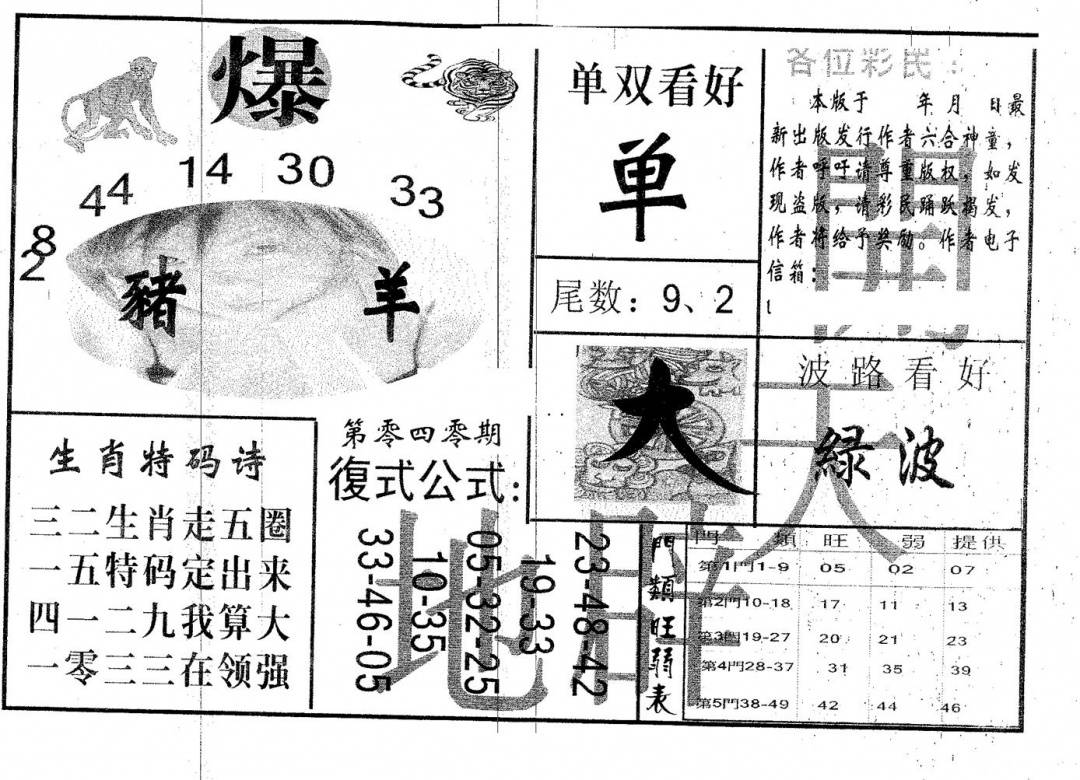 爆
44
14
30
33
28
豬
羊
单双看好
单
尾数：9、2
各位彩民：
本版于 年 月 日最
新出版发行作者六合神童，
作者呼吁请尊重版权，如发
现盗版，请彩民踊跃揭发，
作者将给予奖励。作者电子
信箱：
大
波路看好
緑波
生肖特码诗
三二生肖走五圈
一五特码定出来
四一二九我算大
一零三三在领强
第零四零期
復式公式：
33-46-05
10-35
05-32-25
19-33
23-48-42
門類旺弱表
門 類 旺 弱 提供
第1門1-9 05 02 07
第2門10-18 17 11 13
第3門19-27 20 21 23
第4門28-37 31 35 39
第5門38-49 42 44 46
天
地